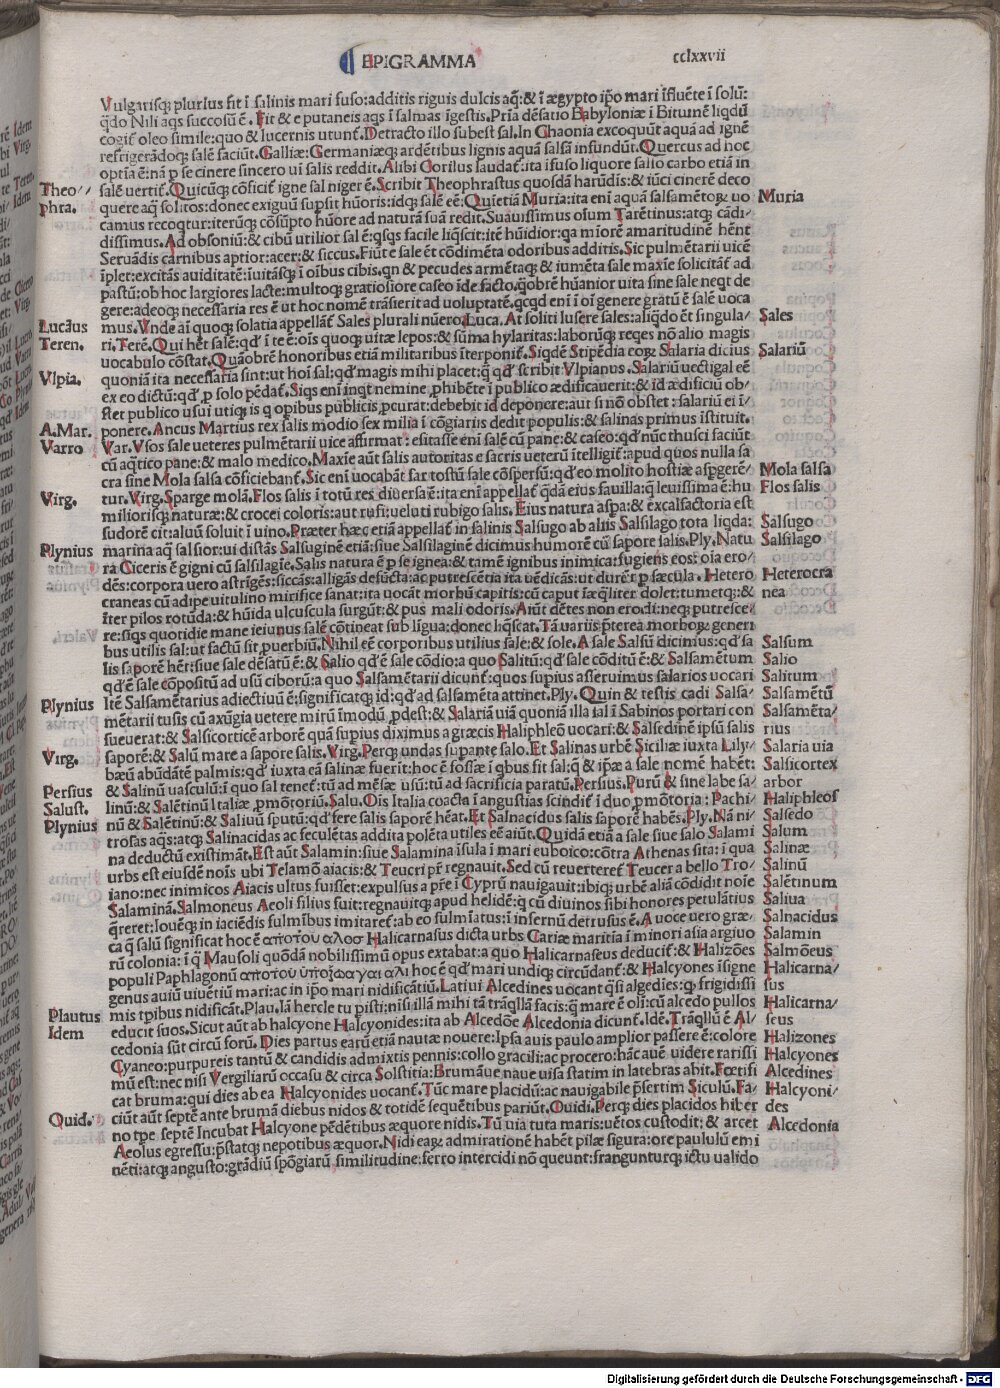 EPIGRAMMA
cclxxvii
Vulgarisq; plurius fit ī salinis mari fuso:additis riguis dulcis aq̄:& ī ægypto ip̄o mari īfluēte ī solū:
q̄do Nili aqs succosū ē. Fit & e puteaneis aqs ī salinas īgestis. Pria dēsatio Babyloniæ ī Bitumē liqdū
cogit̄ oleo simile:quo & lucernis utunt̄. Detracto illo subest sal. In Chaonia excoquūt aquā ad ignē
refrigerādoq; salē faciūt. Galliæ:Germaniæq; ardētibus lignis aquā salsā infundūt. Quercus ad hoc
optia ē:nā p se cinere sincero ui salis reddit. Alibi Corilus laudat̄:ita ifuso liquore salio carbo etiā in
Theo//
salē uertit̄. Quicūq; cōficit̄ igne sal niger ē. Scribit Theophrastus quosdā harūdis:& iūci cinerē deco
Muria
phra.
quere aq̄ solitos:donec exiguū supsit hūoris:idq; salē eē: Quietiā Muria:ita eni aquā salsamētoꝝ uo
camus recoqtur:iterūq; cōsūpto hūore ad naturā suā redit. Suauissimus osum Tarētinus:atq; cādi/
dissimus. Ad obsoniū:& cibū utilior sal ē:qsqs facile liq̄scit:itē hūidior:qa miorē amaritudinē hēnt
Seruādis carnibus aptior:acer:& siccus. Fiūt e sale ēt cōdimēta odoribus additis. Sic pulmētarii uicē
īplet:excitās auiditatē:īuitāsq; ī oībus cibis.qn & pecudes armētaq; & iumēta sale maxīe solicitāt̄ ad
pastū:ob hoc largiores lacte:multoq; gratiosiore caseo īde facto.q̄obrē hūanior uita sine sale neqt de
gere:adeoq; necessaria res ē ut hoc nomē trāsierit ad uoluptatē.qcqd enī ī oī genere gratū ē salē uoca
Lucāus
mus. Vnde aī quoq; solatia appellāt̄ Sales plurali nūero. Luca. At soliti lusere sales:aliqdo ēt singula/
Sales
Teren.
ri. Terē. Qui hēt salē:qd̄ ī te ē:oīs quoq; uitæ lepos:& sūma hylaritas:laborūq; reqes nō alio magis
uocabulo cōstat. Quāobrē honoribus etiā militaribus īterponit̄. Siqdē Stipēdia eoꝝ Salaria dicius
Salariū
Vlpia.
quoniā ita necessaria sint:ut hoī sal:qd̄ magis mihi placet:q̄ qd̄ scribit Vlpianus. Salariū uectigal eē
ex eo dictū:qd̄ p solo pēdat̄. Siqs enī inqt nemine phibēte ī publico ædificauerit:& id ædificiū ob/
stet publico usui utiq; is q opibus publicis pcurat:debebit id deponere:aut si nō obstet:salariū ei ī/
A.Mar.
ponere. Ancus Martius rex salis modio sex milia ī cōgiariis dedit populis:& salinas primus istituit.
Varro
Var. Vsos sale ueteres pulmētarii uice affirmat:esitasse enī salē cū pane:& caseo:qd̄ nūc thusci faciūt
cū aq̄tico pane:& malo medico. Maxīe aūt salis autoritas e sacris ueterū ītelligit̄:apud quos nulla sa
cra sine Mola salsa cōficiebant̄. Sic enī uocabāt far tostū sale cōspersū:qd̄ eo molito hostiæ aspgerē/
Mola salsa
Virg.
tur. Virg. Sparge molā. Flos salis ī totū res diuersa ē:ita enī appellat̄ q̄dā eius fauilla:q̄ leuissima ē:hu
Flos salis
miliorisq; naturæ:& crocei coloris:aut rufi:ueluti rubigo salis. Eius natura aspa:& excalfactoria est
sudorē cit:aluū soluit ī uino. Præter hæc etiā appellat̄ in salinis Salsugo ab aliis Salsilago tota liqda:
Salsugo
Plynius
marina aq̄ salsior:ui distās Salsuginē etiā:siue Salsilaginē dicimus humorē cū sapore salis. Ply. Natu
Salsilago
ra Ciceris ē gigni cū salsilagīe. Salis natura ē p se ignea:& tamē ignibus inimica:fugiens eos:oīa ero/
dēs:corpora uero astrīgēs:siccās:alligās defūcta:ac putrescētia ita uēdicās:ut durēt p sæcula. Hetero
Heterocra
craneas cū adipe uitulino mirifice sanat:ita uocāt morbū capitis:cū caput īæq̄liter dolet:tumetq;:&
nea
īter pilos rotūda:& hūida ulcuscula surgūt:& pus mali odoris. Aiūt dētes non erodi:neq; putresce/
re:siqs quotidie mane ieiunus salē cōtineat sub līgua:donec liq̄scat. Tā uariis pterea morboꝝ generi
bus utilis sal:ut factū sit puerbiū. Nihil eē corporibus utilius sale:& sole. A sale Salsū dicimus:qd̄ sa
Salsum
lis saporē hēt:siue sale dēsatū ē:& Salio qd̄ ē sale cōdio:a quo Salitū:qd̄ sale cōditū ē:& Salsamētum
Salio
qd̄ ē sale cōpositū ad usū ciborū:a quo Salsamētarii dicunt̄:quos supius asseruimus salarios uocari
Salitum
Plynius
Itē Salsamētarius adiectiuū ē:significatq; id:qd̄ ad salsamēta attinet. Ply. Quin & testis cadi Salsa/
Salsamētū
mētarii tusis cū axūgia uetere mirū īmodū pdest:& Salariā uiā quoniā illa sal ī Sabinos portari con
Salsamēta/
sueuerat:& Salsicorticē arborē quā supius diximus a græcis Haliphleō uocari:& Salsedinē ipsū salis
rius
Virg.
saporē:& Salū mare a sapore salis. Virg. Perq; undas supante salo. Et Salinas urbē Siciliæ iuxta Lily/
Salaria uia
bæū abūdātē palmis:qd̄ iuxta eā salinæ fuerit:hoc ē fossæ ī qbus fit sal:q̄ & ip̄æ a sale nomē habēt:
Salsicortex
Persius
& Salinū uasculū:ī quo sal tenet̄:tū ad mēsæ usū:tū ad sacrificia paratū. Persius. Purū & sine labe sa/
arbor
Salust.
linū:& Salētinū Italiæ pmōtoriū. Salu. Oīs Italia coacta ī angustias scindit̄ ī duo pmōtoria: Pachi/
Haliphleos
Plynius
nū & Salētinū:& Saliuū sputū:qd̄ fere salis saporē hēat. Et Salnacidus salis saporē habēs. Ply. Nā ni/
Salsedo
trosas aqs:atq; Salinacidas ac feculētas addita polēta utiles eē aiūt. Quidā etiā a sale siue salo Salami
Salum
na deductū existimāt. Est aūt Salamin:siue Salamina īsula ī mari euboico:cōtra Athenas sita:ī qua
Salinæ
urbs est eiusdē noīs ubi Telamō aiacis:& Teucri pr̄ regnauit. Sed cū reuerteret̄ Teucer a bello Tro/
Salinū
iano:nec inimicos Aiacis ultus fuisset:expulsus a pr̄e ī Cyprū nauigauit:ibiq; urbē aliā cōdidit noīe
Salētinum
Salaminā. Salmoneus Aeoli filius fuit:regnauitq; apud helidē:q̄ cū diuinos sibi honores petulātius
Saliua
q̄reret:Iouēq; in iaciēdis fulmībus imitaret̄:ab eo fulmīatus:ī infernū detrusus ē. A uoce uero græ/
Salnacidus
ca q̄ salū significat hoc ē αποτου αλοσ Halicarnasus dicta urbs Cariæ maritia ī minori asia argiuo
Salamin
rū colonia:ī q̄ Mausoli quōdā nobilissimū opus extabat:a quo Halicarnaseus deducit̄:& Halizōes
Salmōeus
populi Paphlagonū αποτου υποζωαγαι αλι hoc ē qd̄ mari undiq; circūdant̄:& Halcyones īsigne
Halicarna/
genus auiū uiuētiū mari:ac in ip̄o mari nidificātiū. Latiui Alcedines uocant q̄si algedies:qꝫ frigidissi
sus
Plautus
mis tpibus nidificāt. Plau. Iā hercle tu pisti:nisi illā mihi tā trāq̄llā facis:q̄ mare ē oli:cū alcedo pullos
Halicarna/
Idem
educit suos. Sicut aūt ab halcyone Halcyonides:ita ab Alcedōe Alcedonia dicunt̄. Idē. Trāq̄llū ē Al/
seus
cedonia sūt circū forū. Dies partus earū etiā nautæ nouere:Ipsa auis paulo amplior passere ē:colore
Halizones
Cyaneo:purpureis tantū & candidis admixtis pennis:collo gracili:ac procero:hāc auē uidere rarissi
Halcyones
mū est:nec nisi Vergiliarū occasu & circa Solstitia:Brumāue naue uisa statim in latebras abit. Fœtifi
Alcedines
cat bruma:qui dies ab ea Halcyonides uocant̄. Tūc mare placidū:ac nauigabile psertim Siculū. Fa/
Halcyoni/
Ouid.
ciūt aūt septē ante brumā diebus nidos & totidē sequētibus pariūt. Ouidi. Perq; dies placidos hiber
des
no tpe septē Incubat Halcyone pēdētibus æquore nidis. Tū uia tuta maris:uētos custodit:& arcet
Alcedonia
Aeolus egressu:pstatq; nepotibus æquor. Nidi eaꝝ admirationē habēt pilæ figura:ore paululū emi
nēti:atq; angusto:grādiū spōgiarū similitudine:ferro intercidi nō queunt:frangunturq; ictu ualido
Digitalisierung gefördert durch die Deutsche Forschungsgemeinschaft - DFG